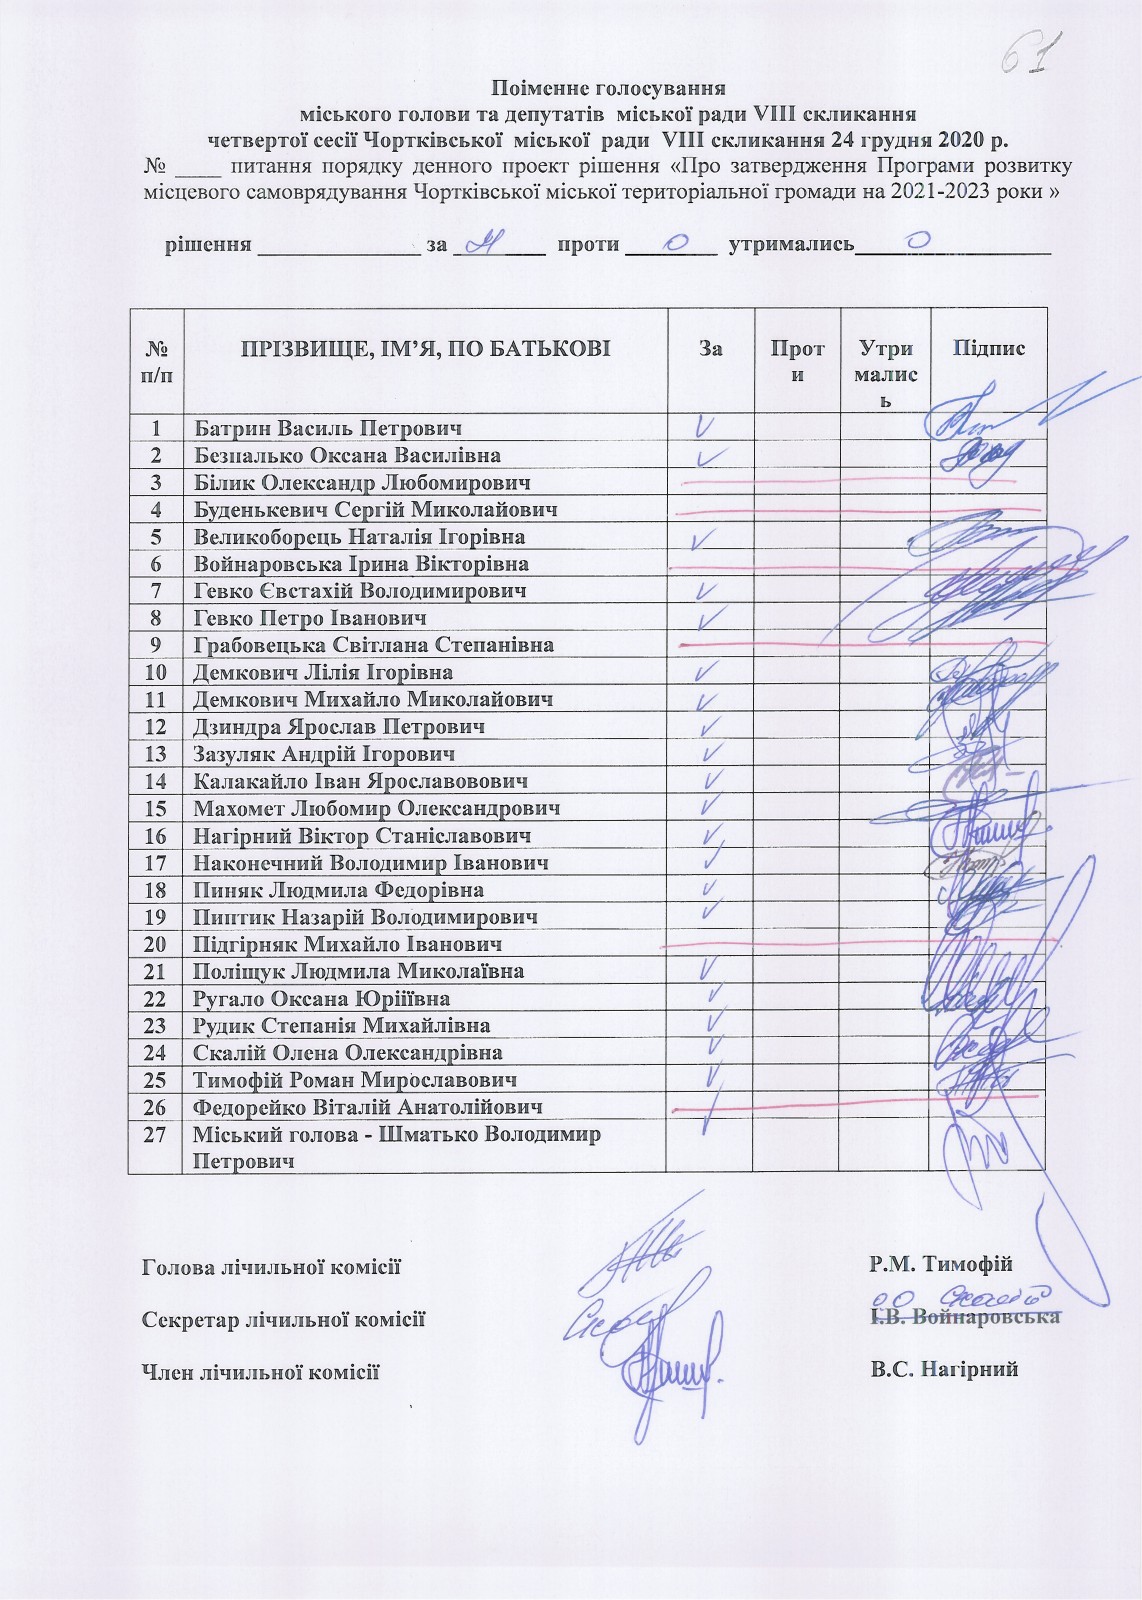 61
Поіменне голосування
міського голови та депутатів міської ради VIII скликання
четвертої сесії Чортківської міської ради VIII скликання 24 грудня 2020 р.
№ ____ питання порядку денного проект рішення «Про затвердження Програми розвитку
місцевого самоврядування Чортківської міської територіальної громади на 2021-2023 роки »
рішення ______________ за ________ проти 0 утримались 0
№ п/п ПРІЗВИЩЕ, ІМ’Я, ПО БАТЬКОВІ За Проти Утрималисьь Підпис
1 Батрин Василь Петрович V
2 Безпалько Оксана Василівна V
3 Білик Олександр Любомирович
4 Буденькевич Сергій Миколайович
5 Великоборець Наталія Ігорівна V
6 Войнаровська Ірина Вікторівна
7 Гевко Євстахій Володимирович V
8 Гевко Петро Іванович V
9 Грабовецька Світлана Степанівна
10 Демкович Лілія Ігорівна V
11 Демкович Михайло Миколайович V
12 Дзиндра Ярослав Петрович V
13 Зазуляк Андрій Ігорович V
14 Калакайло Іван Ярославовович V
15 Махомет Любомир Олександрович V
16 Нагірний Віктор Станіславович V
17 Наконечний Володимир Іванович V
18 Пиняк Людмила Федорівна V
19 Пиптик Назарій Володимирович V
20 Підгірняк Михайло Іванович
21 Поліщук Людмила Миколаївна V
22 Ругало Оксана Юріїївна V
23 Рудик Степанія Михайлівна V
24 Скалій Олена Олександрівна V
25 Тимофій Роман Мирославович V
26 Федорейко Віталій Анатолійович
27 Міський голова - Шматько Володимир V
Петрович
Голова лічильної комісії Р.М. Тимофій
ОО Скалій
Секретар лічильної комісії І.В. Войнаровська
Член лічильної комісії В.С. Нагірний